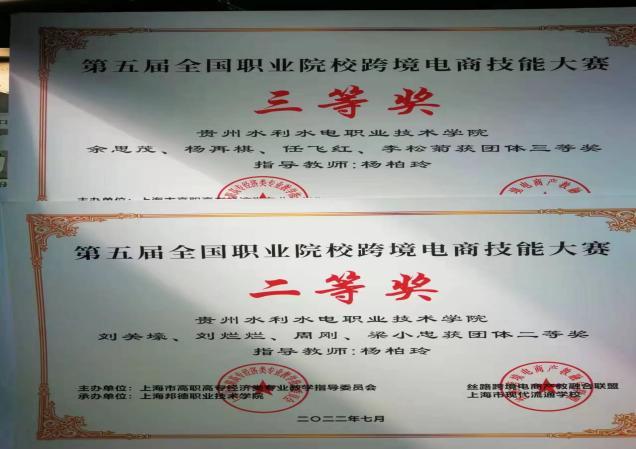 第五届全国职业院校跨境电商技能大赛
三等奖
贵州水利水电职业技术学院
余思茂、杨再棋、任飞红、李松菊获团体三等奖
指导教师:杨柏玲
第五届全国职业院校跨境电商技能大赛
二等奖
贵州水利水电职业技术学院
刘美壕、刘烂烂、周刚、梁小忠获团体二等奖
指导教师:杨柏玲
主办单位:上海市高职高专经济类专业教学指导委员会
丝路跨境电商产教融合联盟
承办单位:上海邦德职业技术学院
上海市现代流通学校
二〇二二年七月